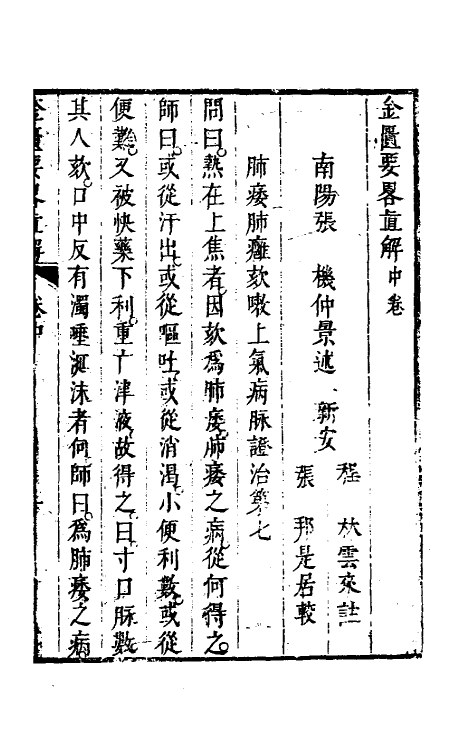 金匱要畧直解中卷
南陽張 機仲景述 新安
程 林雲來註
張 邦是居較
肺痿肺癰欬嗽上氣病脉證治第七
問曰熱在上焦者因欬爲肺痿肺痿之病從何得之
師曰或從汗出或從嘔吐或從消渴小便利數或從
便難又被快藥下利重亡津液故得之曰寸口脉數
其人欬口中反有濁唾涎沫者何師曰爲肺痿之病
金匱要畧直解 卷中